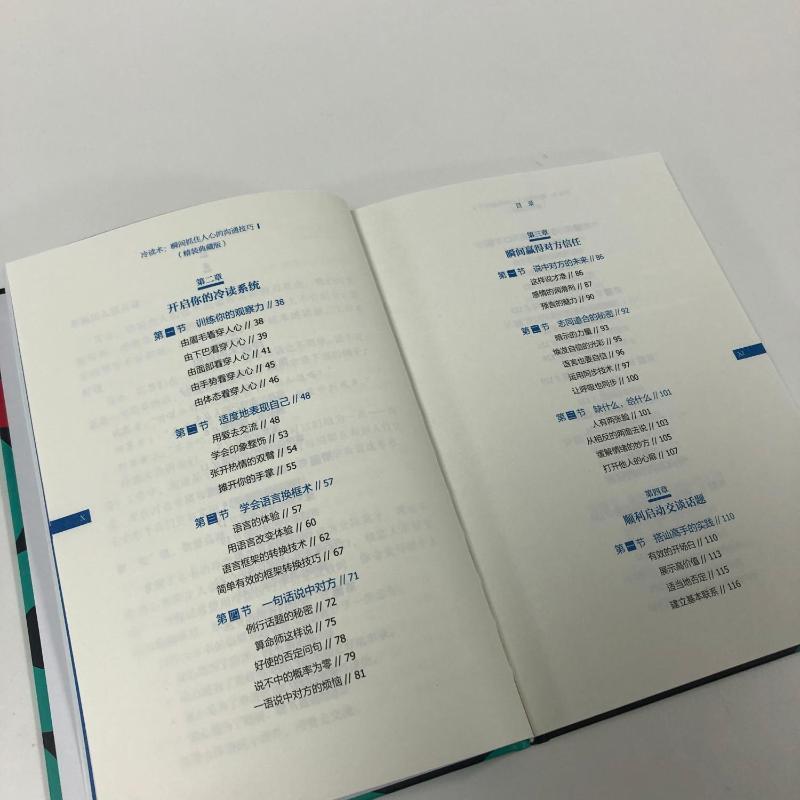 冷读术：瞬间抓住人心的沟通技巧
（精装典藏版）
第二章
开启你的冷读系统
第一节 训练你的观察力 // 38
由眉毛看穿人心 // 38
由下巴看穿人心 // 39
由面部看穿人心 // 41
由手势看穿人心 // 45
由体态看穿人心 // 46
第二节 适度地表现自己 // 48
用爱去交流 // 48
学会印象整饰 // 53
张开热情的双臂 // 54
摊开你的手掌 // 55
第三节 学会语言换框术 // 57
语言的体验 // 57
用语言改变体验 // 60
语言框架的转换技术 // 62
简单有效的框架转换技巧 // 67
第四节 一句话说中对方 // 71
例行话题的秘密 // 72
算命师这样说 // 75
好使的否定问句 // 78
说不中的概率为零 // 79
一语说中对方的烦恼 // 81
X
目 录
第三章
瞬间赢得对方信任
第一节 说中对方的未来 // 86
这样说才准 // 86
感情的润滑剂 // 87
预告的魅力 // 90
第二节 志同道合的秘密 // 92
暗示的力量 // 93
焕发自信的光彩 // 95
语言也要自信 // 96
运用同步技术 // 97
让呼吸也同步 // 100
第三节 缺什么，给什么 // 101
人有两张脸 // 101
从相反的两面去说 // 103
缓解情绪的妙方 // 105
打开他人的心扉 // 107
第四章
顺利启动交谈话题
第一节 搭讪高手的实践 // 110
有效的开场白 // 110
展示高价值 // 113
适当地否定 // 115
建立基本联系 // 116
XI